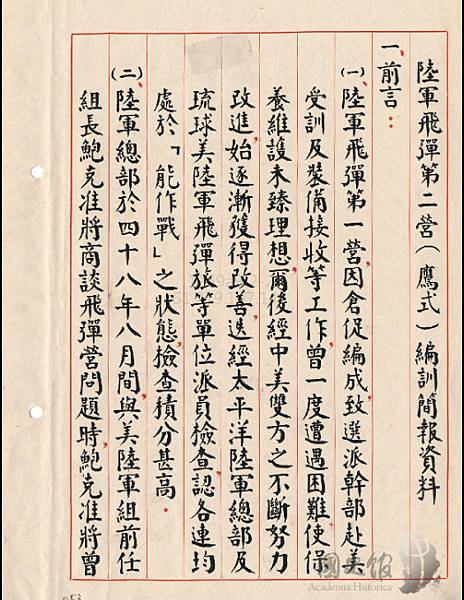 陸軍飛彈第二營(鷹式)編訓簡報資料
一、前言：
(一)陸軍飛彈第一營，因倉促編成，致選派幹部赴美
受訓及裝備接收等工作，曾一度遭遇困難，使保
養維護未臻理想，爾後經中美雙方之不斷努力
改進，始逐漸獲得改善，迭經太平洋陸軍總部及
琉球美陸軍飛彈旅等單位派員檢查，認各連均
處於「能作戰」之狀態，檢查積分甚高。
(二)陸軍總部於四十八年八月間，與美陸軍組前任
組長鮑克准將商談飛彈營問題時，鮑克准將曾
國史館
Academia Historica